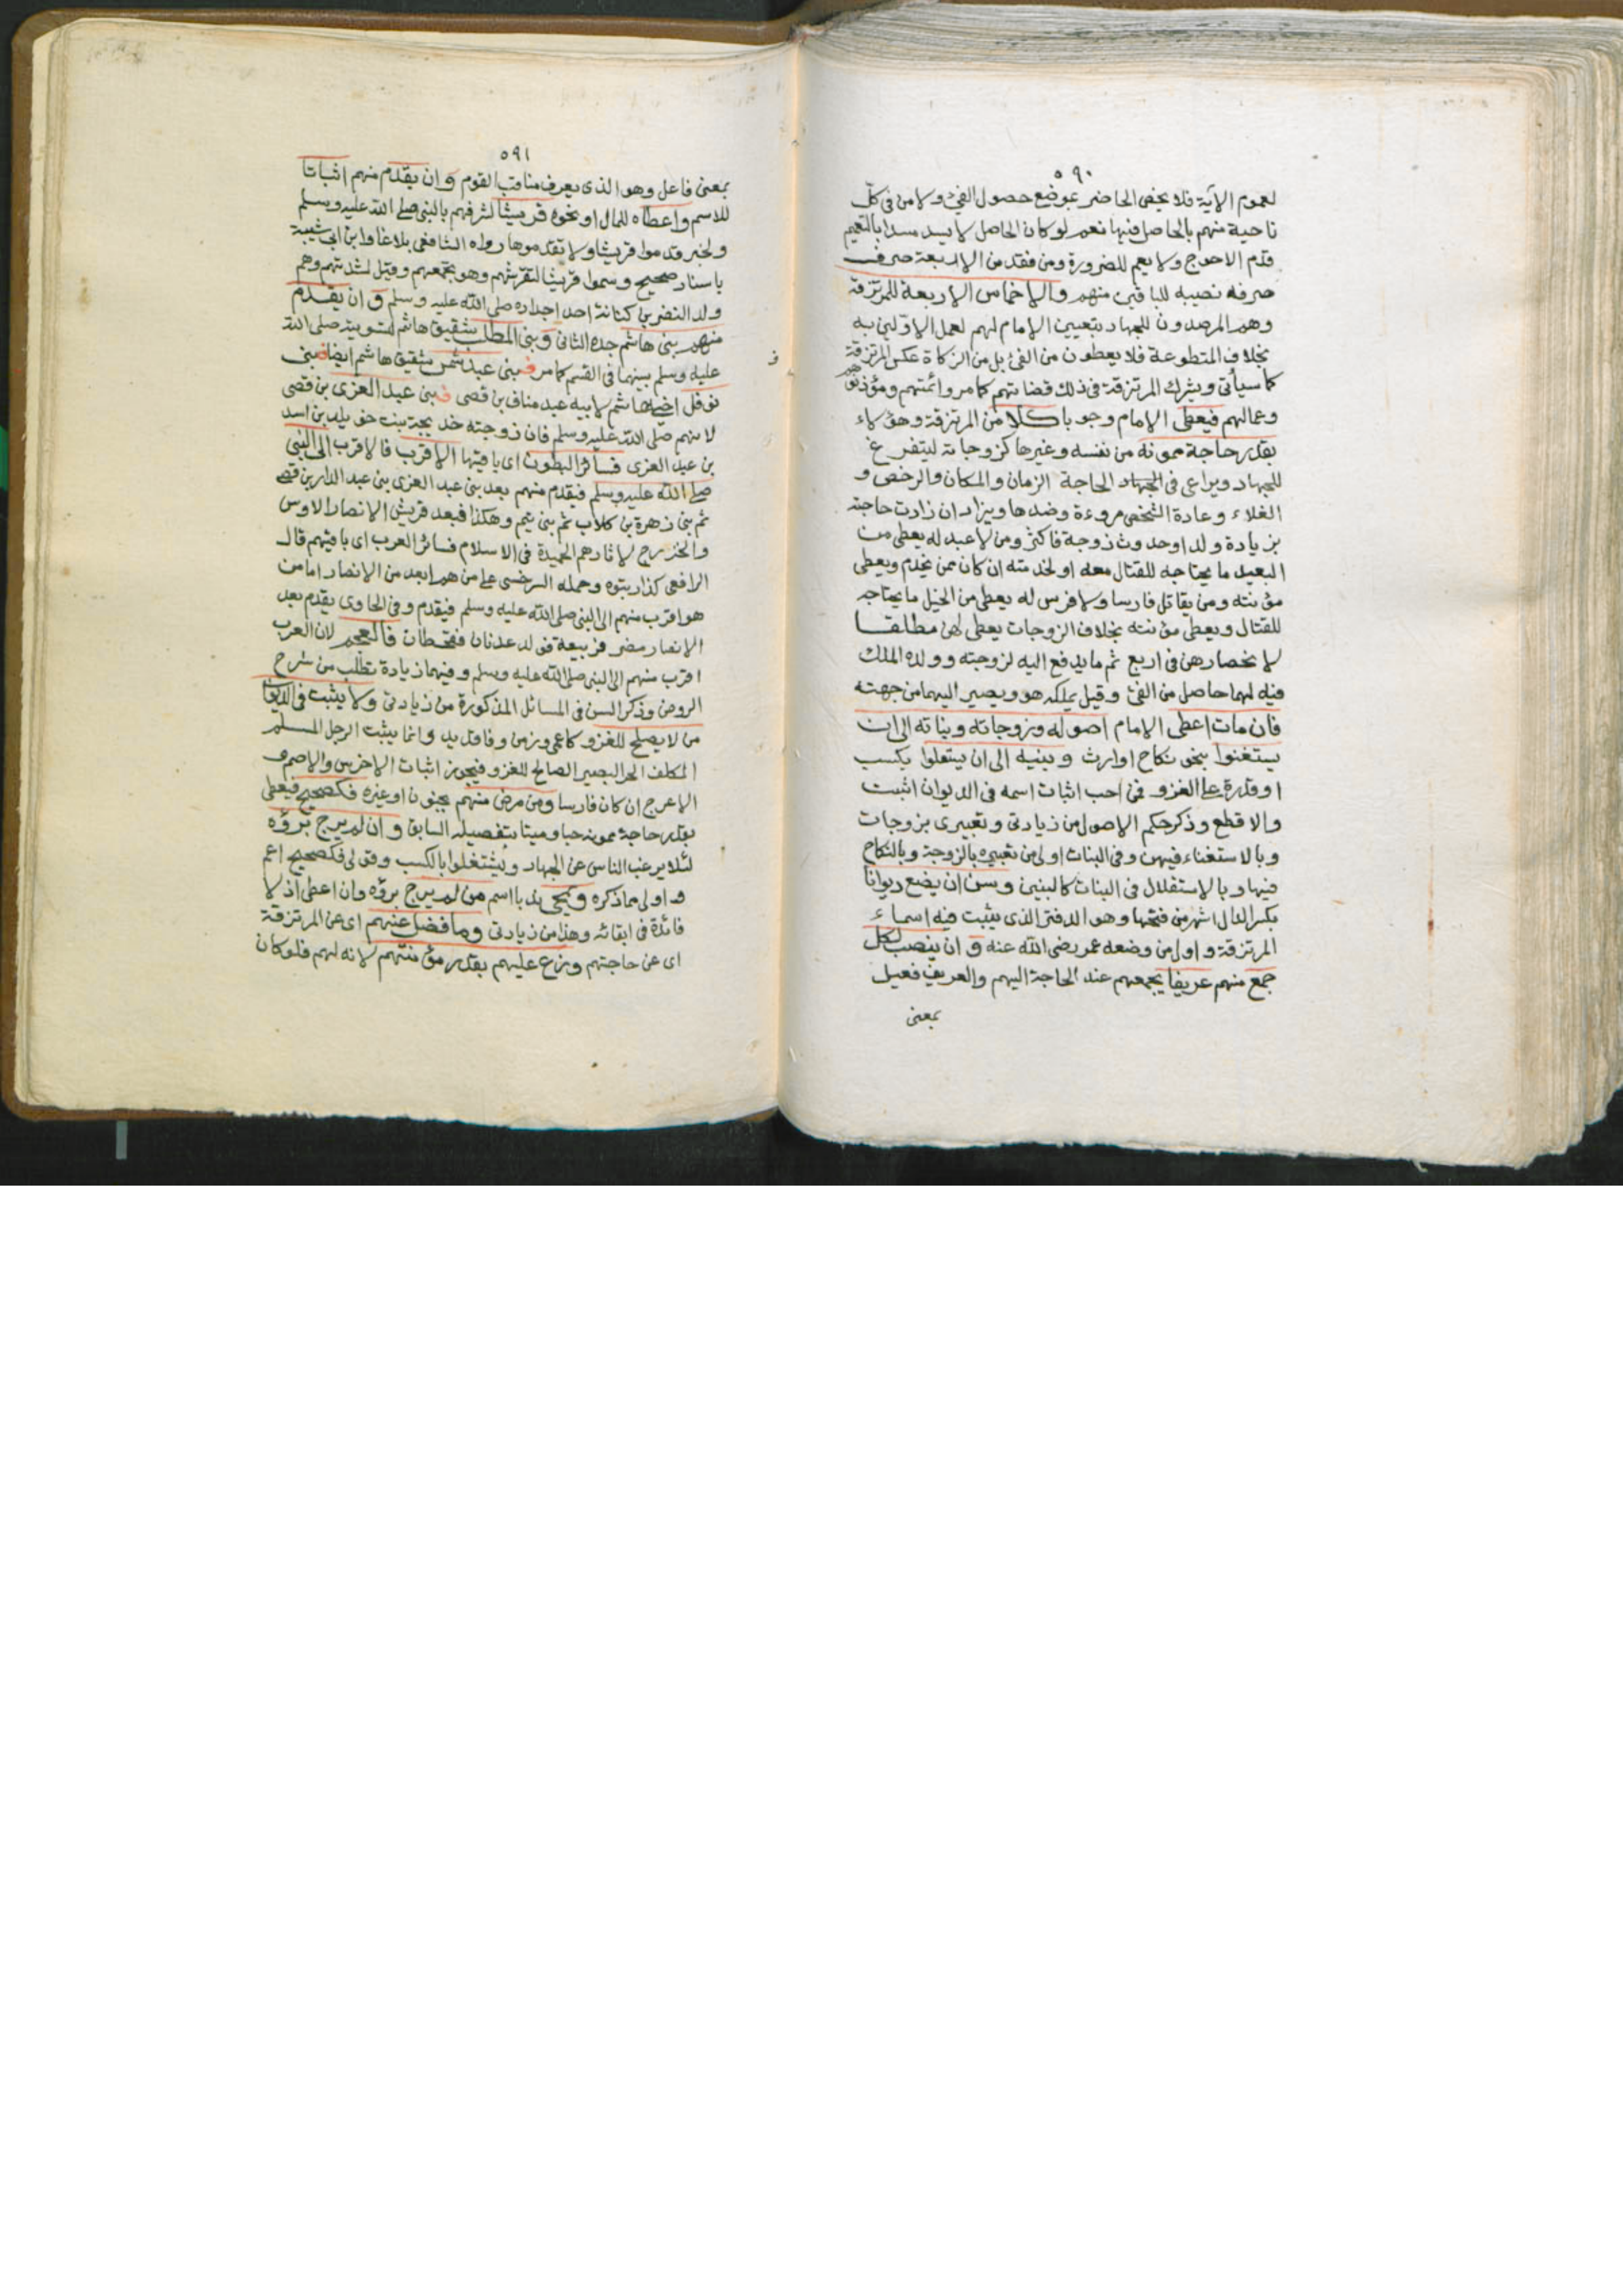 ٥٩٠
لعموم الآية فلا يخص الحاضر بموضع حصول الفئ ولا من في كل
ناحية منهم بالحاصل فيها نعم لو كان الحاصل لا يسد مسدا بالتعميم
قدم الاحوج ولا يعم للضرورة ومن فقد من الاربعة صرف
صرفه نصيبه للباقين منهم والاخماس الاربعة للمرتزقة
وهم المرصدون للجهاد بتعيين الإمام لهم لعمل الاولين به
بخلاف المتطوعة فلا يعطون من الفئ بل من الزكاة عكس المرتزقة
كما سيأتى ويشرك المرتزقة في ذلك قضاتهم كما مر وائمتهم ومؤذنوهم
وعمالهم فيعطى الإمام وجوبا كلا من المرتزقة وهؤلاء
بقدر حاجة ممونه من نفسه وغيرها كزوجاته ليتفرغ
للجهاد ويراعى في الحاجة الزمان والمكان والرخص و
الغلاء وعادة الشخص مروءة وضدها ويزاد ان زادت حاجته
بزيادة ولد او حدوث زوجة فاكثر ومن لا عبد له يعطى من
العبيد ما يحتاجه للقتال معه او لخدمته ان كان ممن يخدم ويعطى
مؤنته ومن يقاتل فارسا ولا فرس له يعطى من الخيل ما يحتاجه
للقتال ويعطى مؤنته بخلاف الزوجات يعطى لهن مطلقا
لا نحصارهن في اربع ثم ما يدفع اليه لزوجته وولده الملك
فيه لهما حاصل من الفئ وقيل يملكه هو ويصير اليهما من جهته
فان مات اعطى الامام اصوله وزوجاته وبناته الى ان
يستغنوا بنحو نكاح او ارث وبنيه الى ان يستقلوا بكسب
او قدرة على الغزو فمن احب اثبات اسمه في الديوان اثبت
والا قطع وذكر حكم الاصول من زيادتى وتعبيرى بزوجات
وبالاستغناء فيهن وفي البنات اولى من تعبيره بالزوجة وبالنكاح
فيها وبالاستقلال في البنات كالبنين وسن ان يضع ديوانا
بكسر الدال اشهر من فتحها وهو الدفتر الذى يثبت فيه اسماء
المرتزقة واول من وضعه عمر رضى الله عنه و ان ينصب لكل
جمع منهم عريفا يجمعهم عند الحاجة اليهم والعريف فعيل
بمعنى
٥٩١
بمعنى فاعل وهو الذى يعرف مناقب القوم و ان يقدم منهم اثباتا
للاسم واعطاء للمال او نحوه قريشا لشرفهم بالنبى صلى الله عليه وسلم
ولخبر قدموا قريشا ولا تقدموها رواه الشافعى بلاغا وابن ابى شيبة
باسناد صحيح وسموا قريشا لتقرشهم وهو تجمعهم وقيل لشدتهم وهم
ولد النضر بن كنانة احد اجداده صلى الله عليه وسلم و ان يقدم
منهم بنى هاشم جده الثانى وبنى المطلب شقيق هاشم لتسويته صلى الله
عليه وسلم بينهما في القسم كما مر فبنى عبد شمس شقيق هاشم ايضا فبنى
نوفل اخى هاشم لابيه عبد مناف بن قصى فبنى عبد العزى بن قصى
لانهم صلى الله عليه وسلم فان زوجته خديجة بنت خويلد بن اسد
بن عبد العزى فسائر البطون اى باقيها الاقرب فالاقرب الى النبى
صلى الله عليه وسلم فيقدم منهم بعد بنى عبد العزى بنى عبد الدار بن قصى
ثم بنى زهرة بن كلاب ثم بنى تيم وهكذا فبعد قريش الانصار الاوس
والخزرج لآثارهم الحميدة في الاسلام فسائر العرب اى باقيهم قال
الرافعى كذا رتبوه وحمله السرخسى على من هم ابعد من الانصار اما من
هو اقرب منهم الى النبى صلى الله عليه وسلم فيقدم وفي الحاوى يقدم بعد
الانصار مضر فربيعة فولد عدنان فقحطان فالعجم لان العرب
اقرب منهم الى النبى صلى الله عليه وسلم وفيهما زيادة تطلب من شرح
الروض وذكر السن في المسائل المذكورة من زيادتى ولا يثبت في الديوان
من لا يصلح للغزو كاعمى وزمن وفاقد يد وانما يثبت الرجل المسلم
المكلف الحر البصير الصالح للغزو فيجوز اثبات الاخرس والاصم و
الاعرج ان كان فارسا ومن مرض منهم بجنون او غيره فكصحيح فيعطى
بقدر حاجة ممونه حيا وميتا بتفصيله السابق و ان لم يرج برؤه
لئلا يرغب الناس عن الجهاد ويشتغلوا بالكسب وقولى فكصحيح اعم
واولى مما ذكره ويمحى ندبا اسم من لم يرج برؤه وان اعطى اذ لا
فائدة في ابقائه وهذا من زيادتى وما فضل عنهم اى عن المرتزقة
اى عن حاجتهم وزع عليهم بقدر مؤنتهم لانه لهم فلو كان